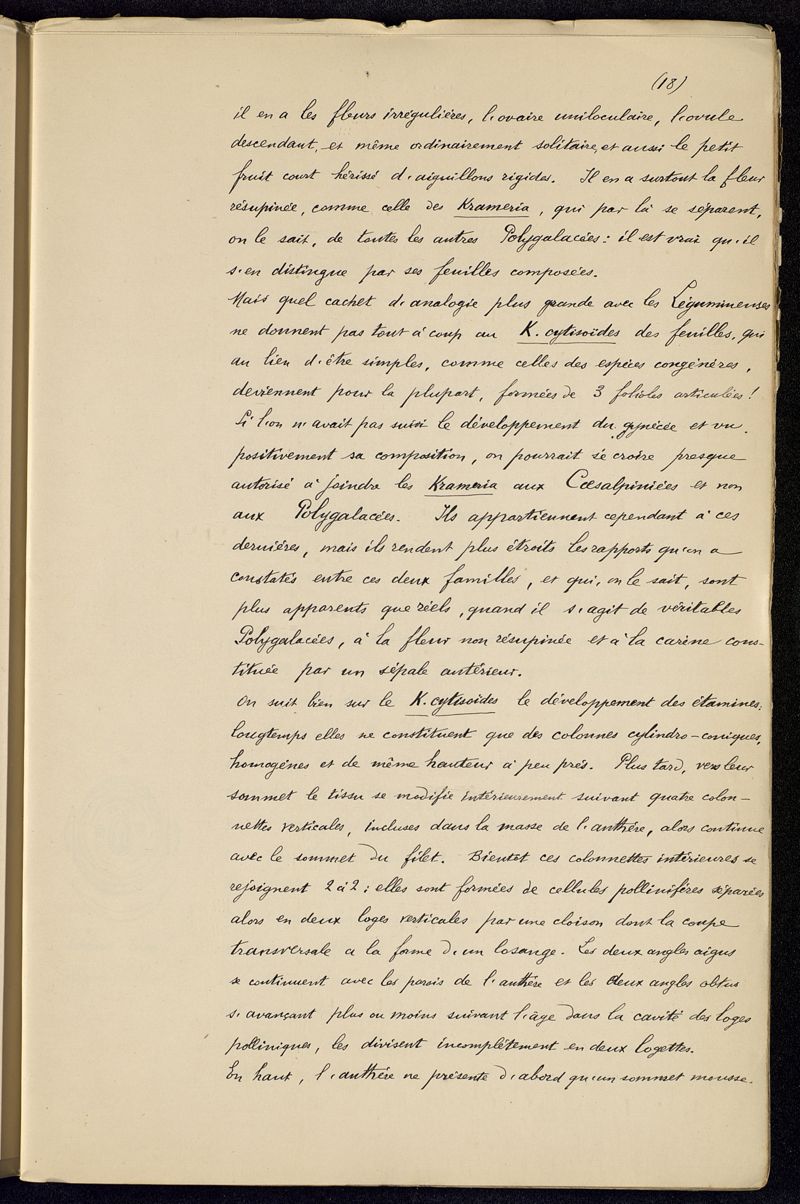 (18)
il en a les fleurs irrégulières, l'ovaire uniloculaire, l'ovule
descendant, et même ordinairement solitaire, et aussi le petit
fruit court hérissé d'aiguillons rigides. Il en a surtout la fleur
résupinée, comme celle des Krameria, qui par là se séparent,
on le sait, de toutes les autres Polygalacées: il est vrai qu'il
s'en distingue par ses feuilles composées.
Mais quel cachet d'analogie plus grande avec les Légumineuses
ne donnent pas tout à coup au K. cytisoides des feuilles, qui
au lieu d'être simples, comme celles des espèces congénères,
deviennent pour la plupart, formées de 3 folioles articulées!
Si l'on n'avait pas suivi le développement du gynécée et vu
positivement sa composition, on pourrait se croire presque
autorisé à joindre les Krameria aux Cæsalpiniées et non
aux Polygalacées. Ils appartiennent cependant à ces
dernières, mais ils rendent plus étroits les rapports qu'on a
constatés entre ces deux familles, et qui, on le sait, sont
plus apparents que réels, quand il s'agit de véritables
Polygalacées, à la fleur non résupinée et à la carène cons-
tituée par un sépale antérieur.
On suit bien sur le K. cytisoides le développement des étamines:
longtemps elles ne constituent que des colonnes cylindro-coniques,
homogènes et de même hauteur à peu près. Plus tard, vers leur
sommet le tissu se modifie intérieurement suivant quatre colon-
nettes verticales, incluses dans la masse de l'anthère, alors continue
avec le sommet du filet. Bientôt ces colonnettes intérieures se
rejoignent 2 à 2: elles sont formées de cellules pollinifères séparées
alors en deux loges verticales par une cloison dont la coupe
transversale a la forme d'un losange. Les deux angles aigus
se continuent avec les parois de l'anthère et les deux angles obtus
s'avançant plus ou moins suivant l'âge dans la cavité des loges
polliniques, les divisent incomplètement en deux logettes.
En haut, l'anthère ne présente d'abord qu'un sommet mousse.